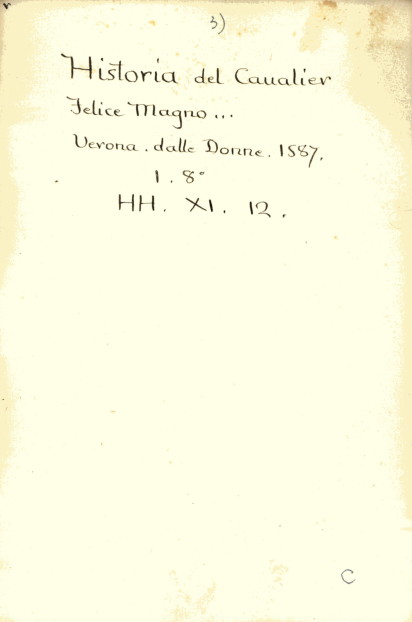 3)
Historia del Caualier
Felice Magno...
Verona. dalle Donne. 1587.
1. 8°
HH. XI. 12.
C